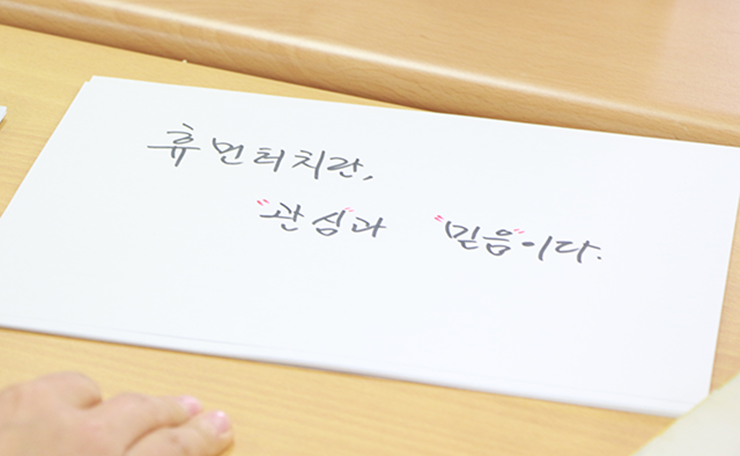 휴먼터치란,
"관심"과 "믿음"이다.